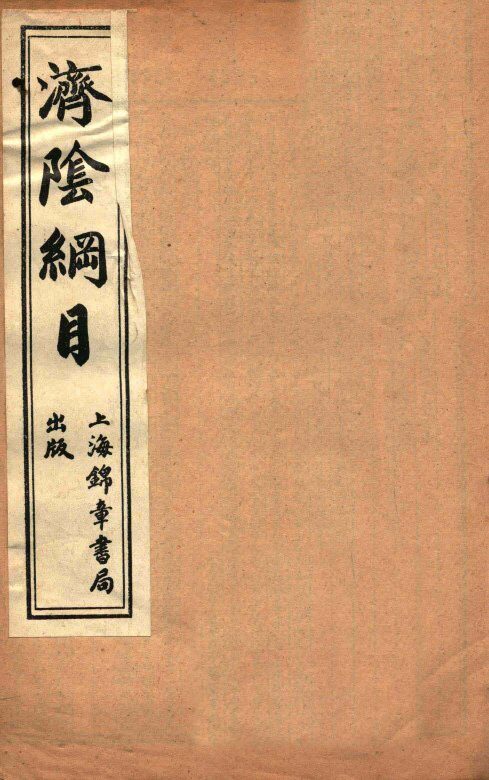 濟陰綱目
上海錦章書局
出版